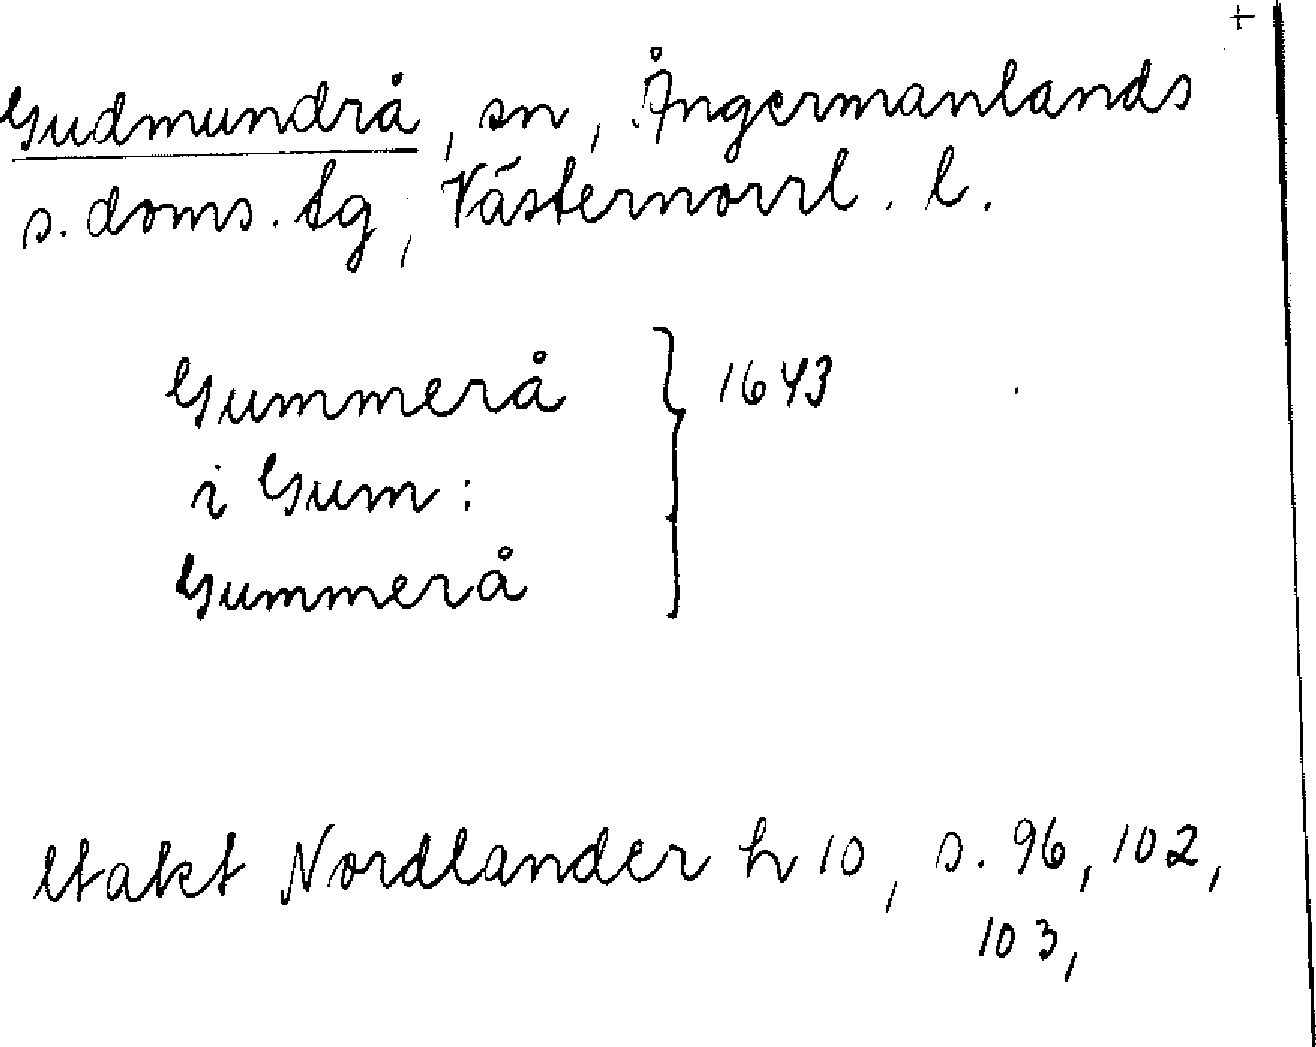 +
Gudmundrå, sn, Ångermanlands
s. doms. tg, Västernorrl. l.
Gummerå } 1643
i Gum:
Gummerå
Utakt Nordlander h 10, s. 96, 102,
103,